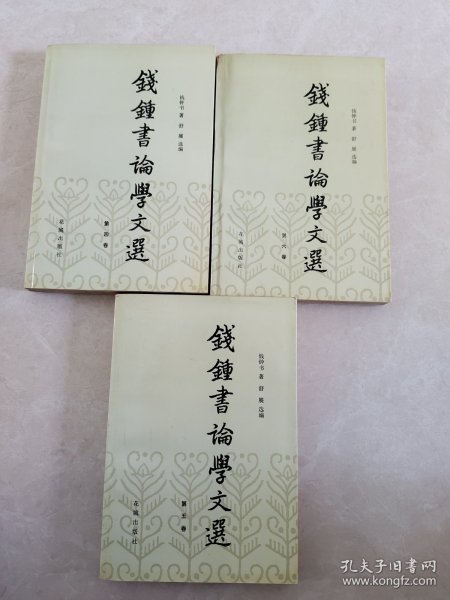 錢鍾書論學文選
钱钟书 著 舒展 选编
第四卷
花城出版社
錢鍾書論學文選
钱钟书 著 舒展 选编
第六卷
花城出版社
錢鍾書論學文選
钱钟书 著 舒展 选编
第五卷
花城出版社
孔夫子旧书网
www.kongfz.com